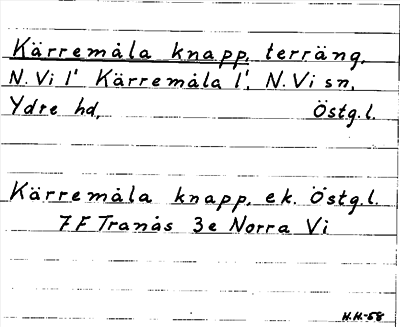 Kärremåla knapp, terräng,
N. Vi l' Kärremåla l', N. Vi sn,
Ydre hd, Östg. l.
Kärremåla knapp. ek. Östg. l.
7 F Tranås 3e Norra Vi
H.H.-58